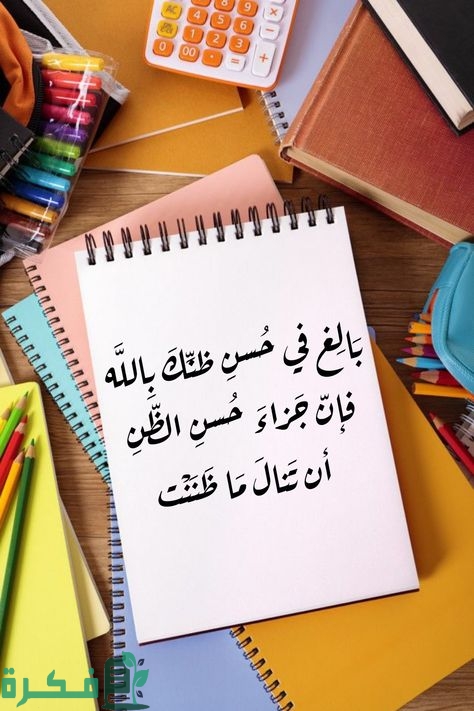 بَالِغ في حُسنِ ظنّكَ بِاللَّه
فإنّ جَزاءَ حُسنِ الظّنِ
أن تَنالَ مَا ظَنَنْت
فكرة
فكرة